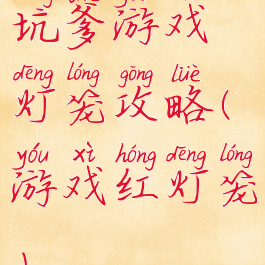 坑爹游戏
dēng lóng gōng lüè
灯笼攻略(
yóu xì hóng dēng lóng
游戏红灯笼
)